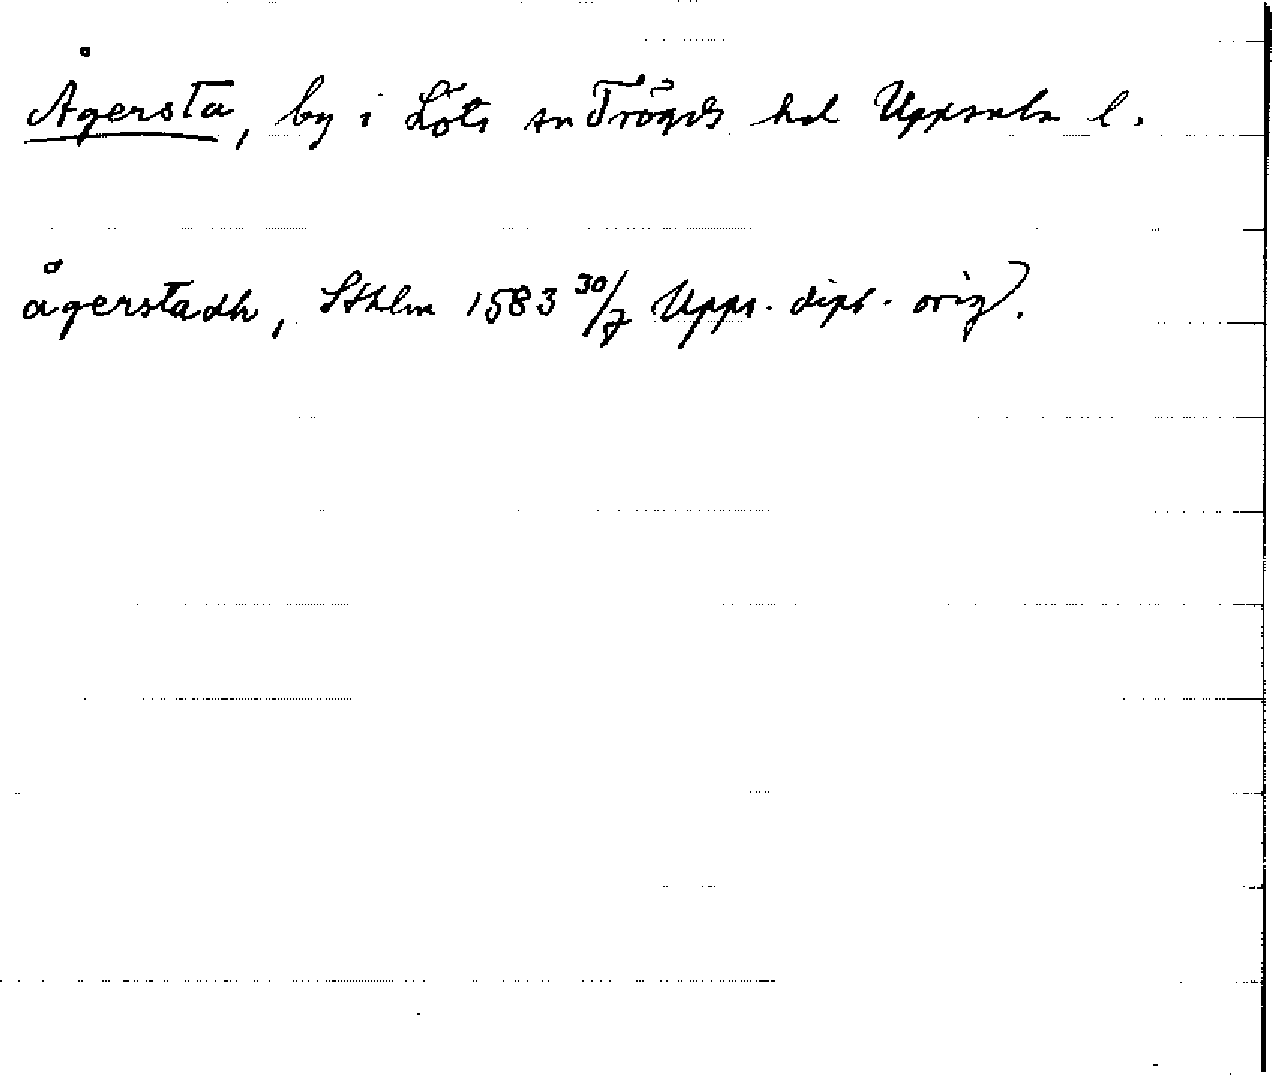 Ågersta, by i Löts sn Trögds hd Uppsala l.
ågerstadh, Sthlm 1583 30/7 Upps. dipl. orig.